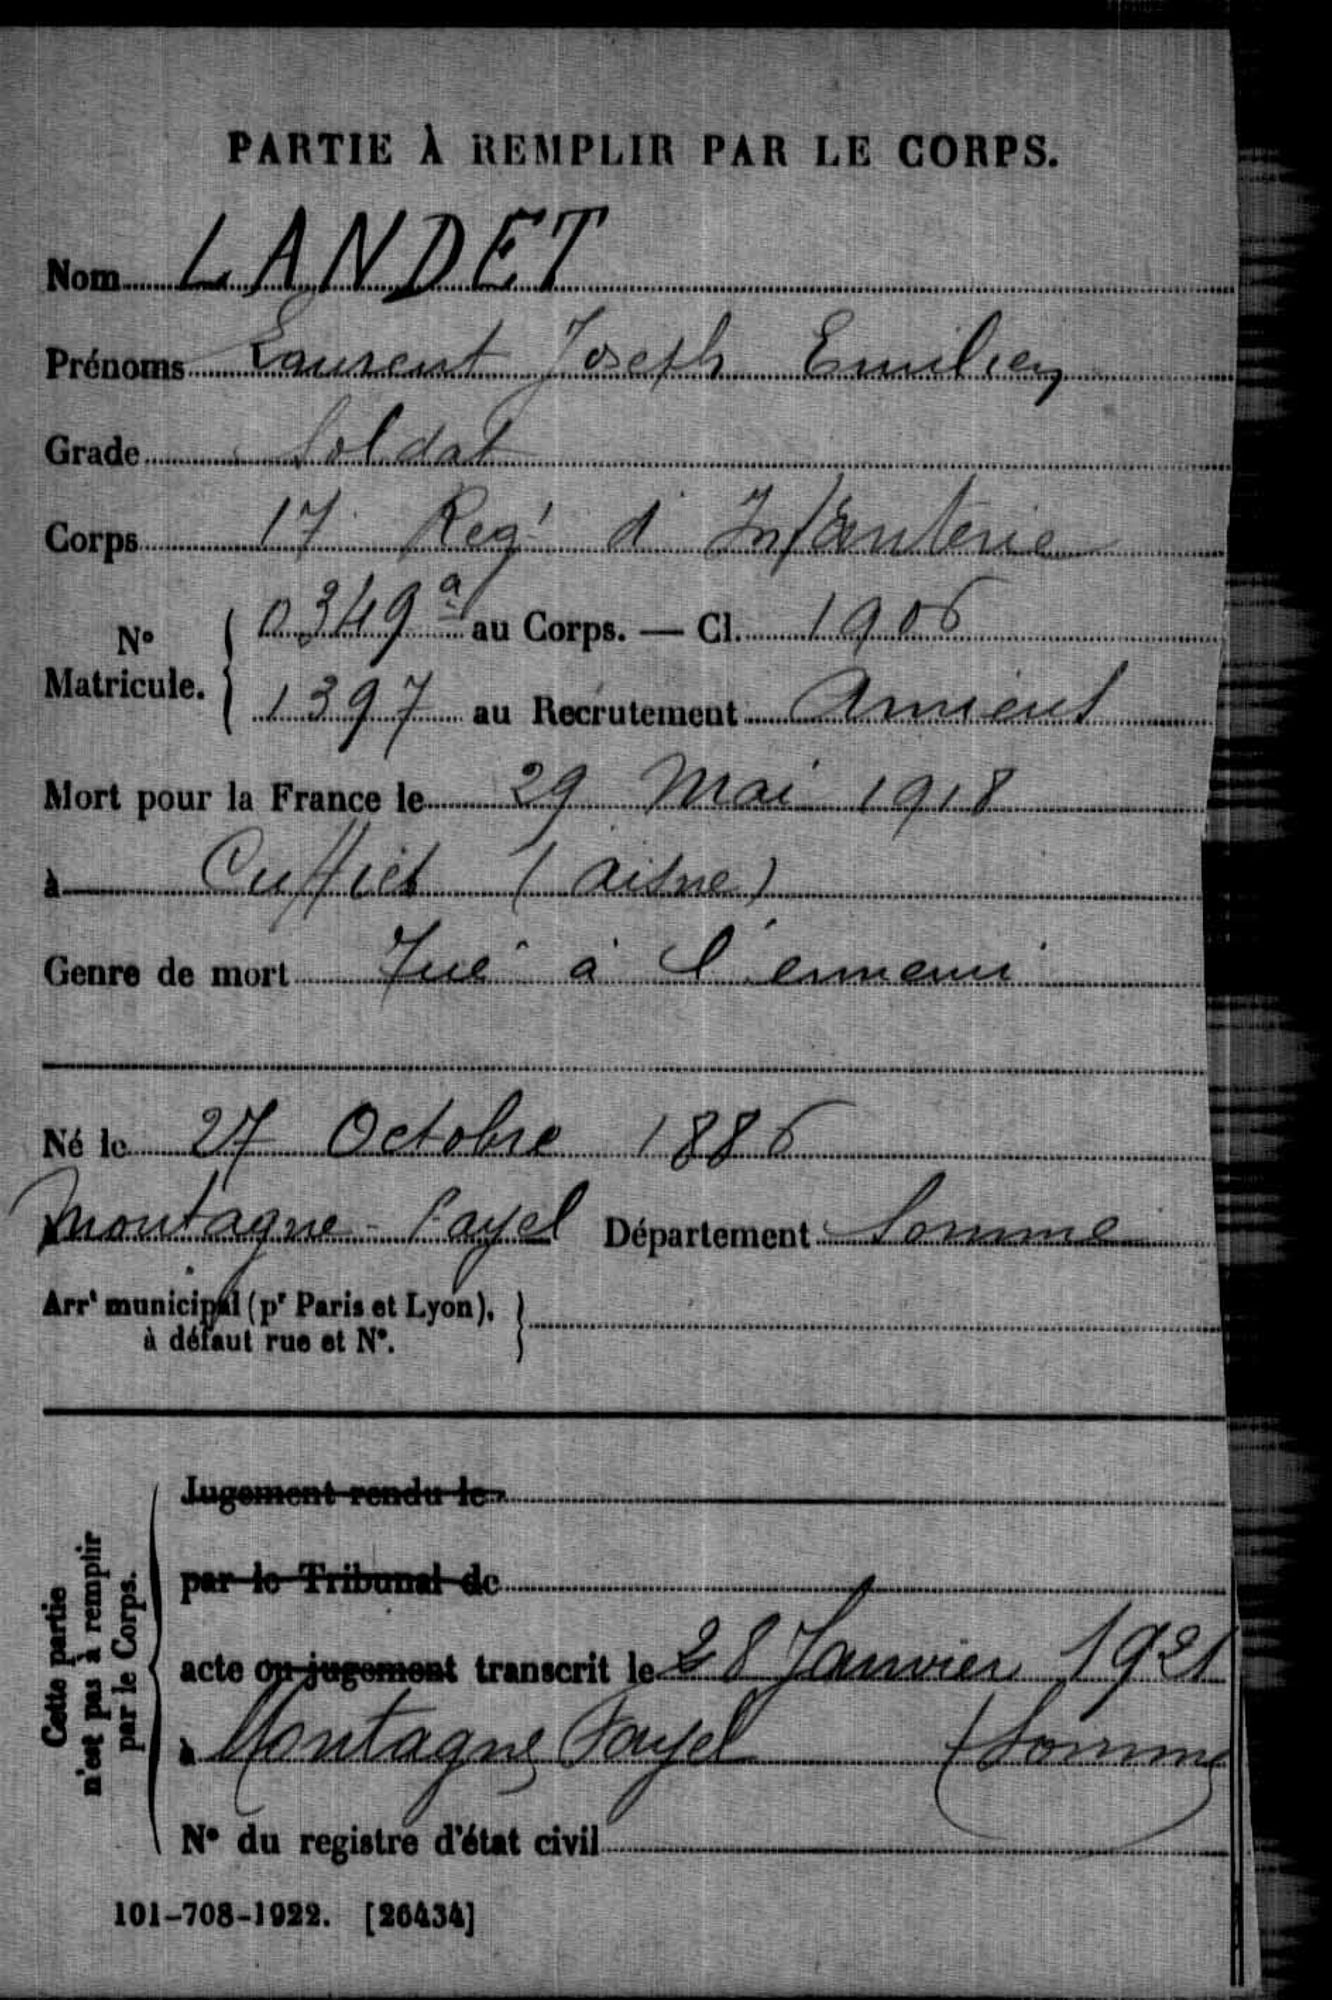 PARTIE À REMPLIR PAR LE CORPS.
Nom LANDET
Prénoms Laurent Joseph Emilien
Grade Soldat
Corps 17 Reg^t d'Infanterie
N° Matricule. { 0349 a au Corps. — Cl. 1906
1397 au Recrutement Amiens
Mort pour la France le 29 Mai 1918
à Cuffies (Aisne)
Genre de mort Tué à l'ennemi
Né le 27 Octobre 1886
Montagne-Fayel Département Somme
Arr^t municipal (p^r Paris et Lyon), à défaut rue et N°. }
Cette partie n'est pas à remplir par le Corps.
Jugement rendu le
par le Tribunal de
acte ou jugement transcrit le 28 Janvier 1921
à Montagne Fayel (Somme)
N° du registre d'état civil
101-708-1922. [26434]